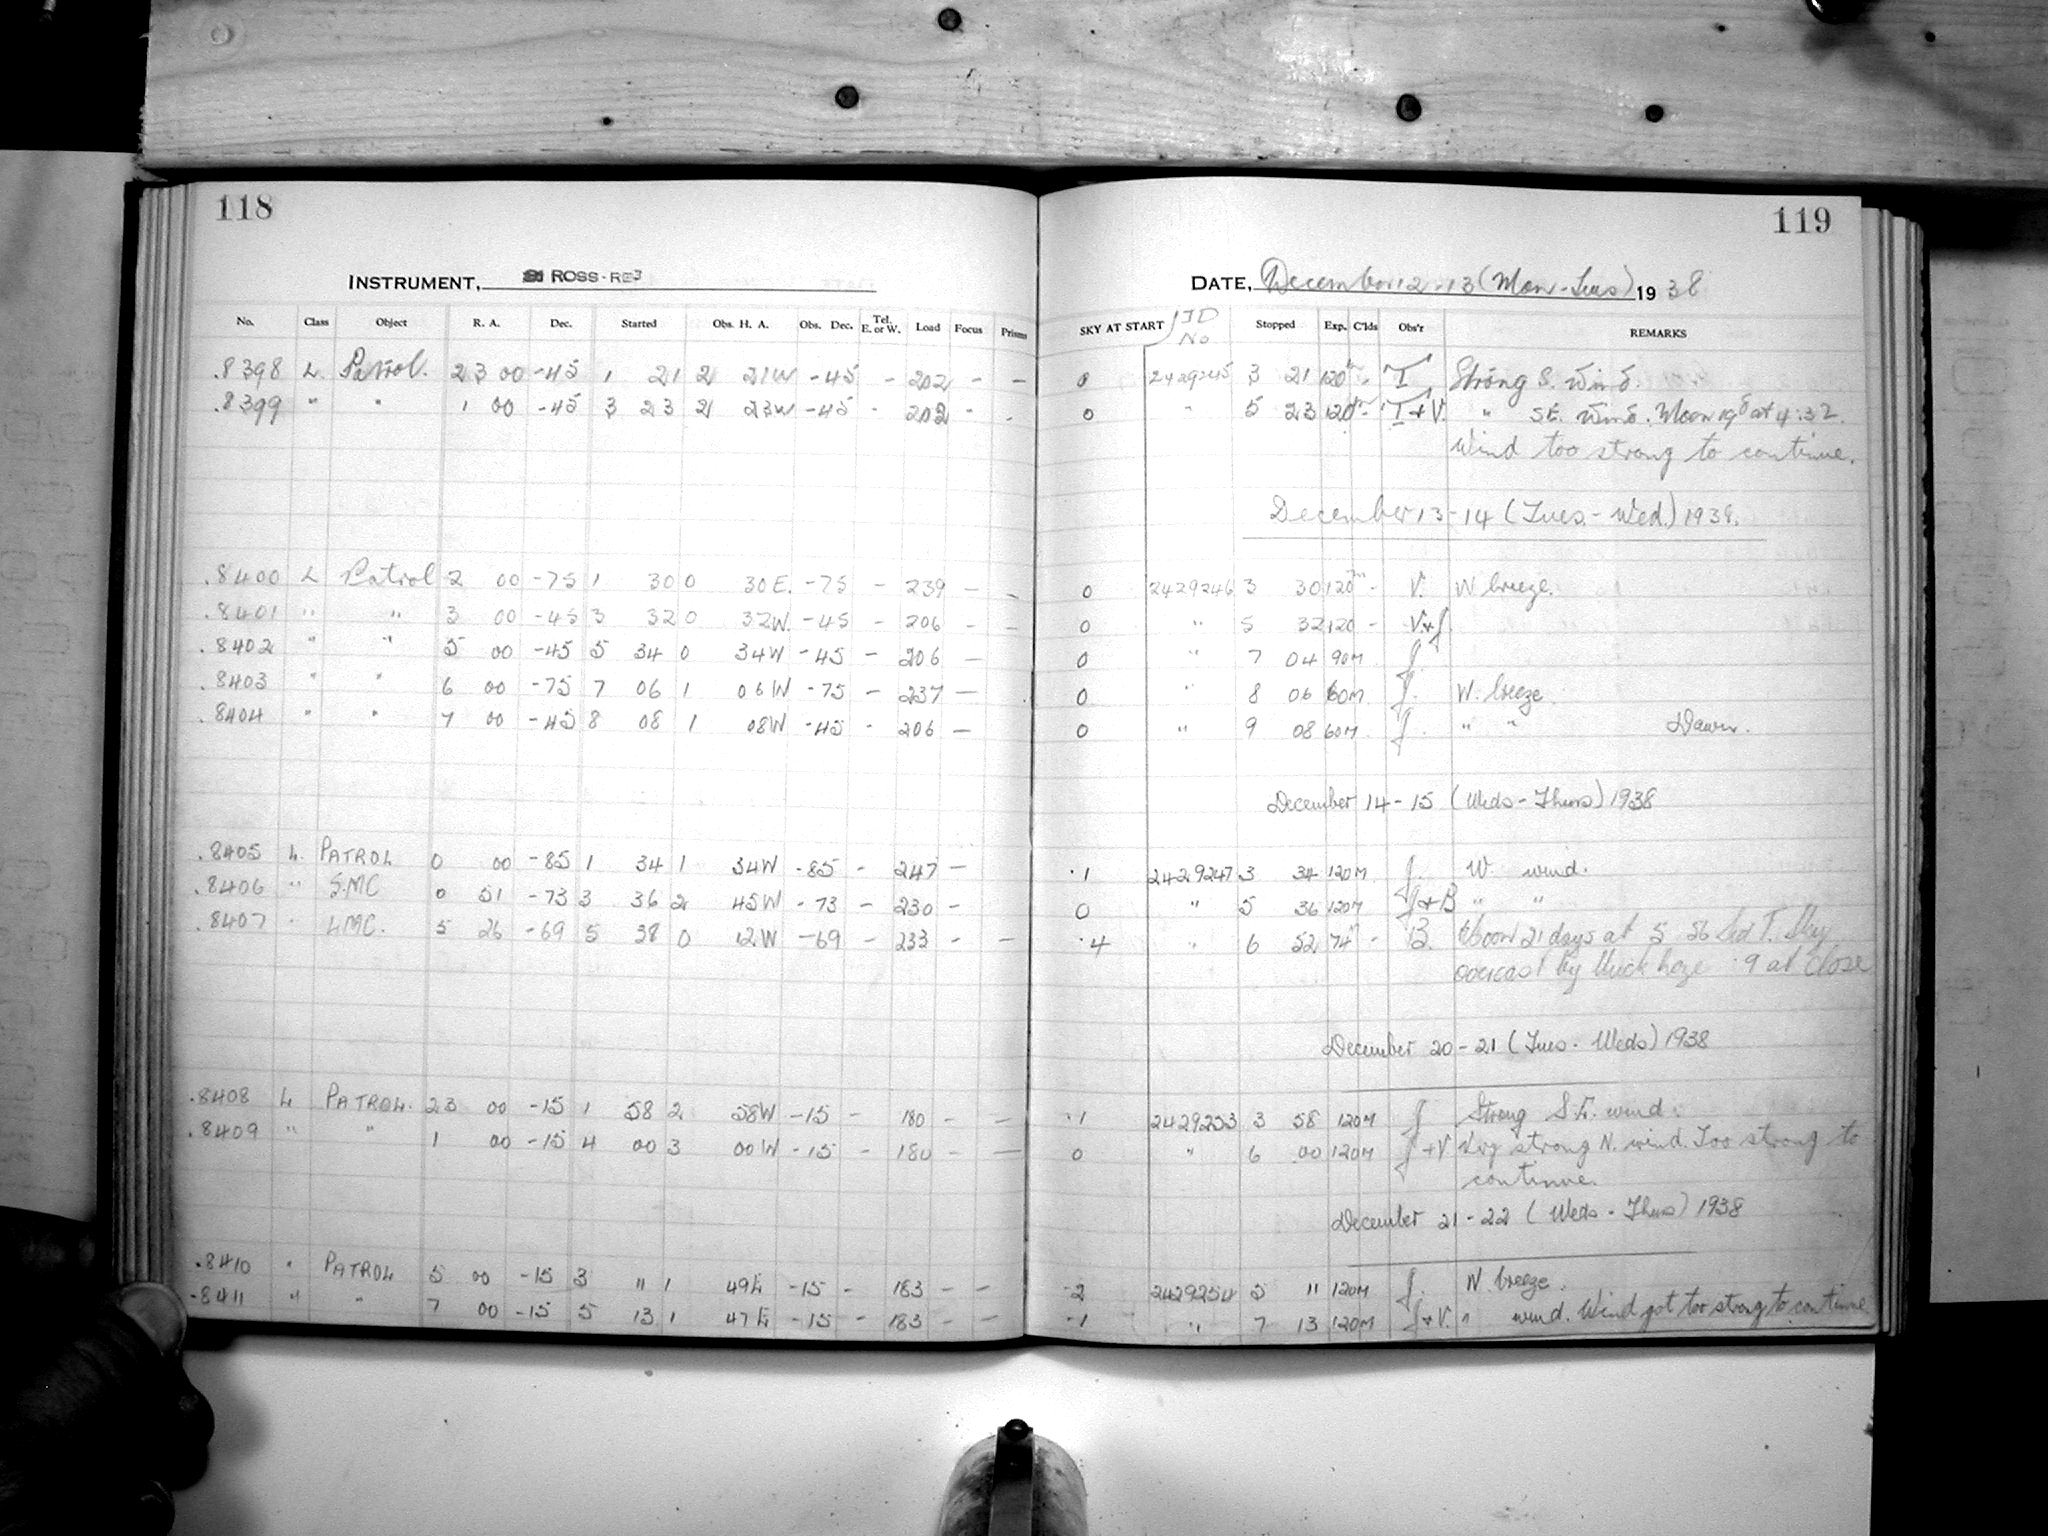 118
INSTRUMENT, ROSS-RE3
No. Class Object R. A. Dec. Started Obs. H. A. Obs. Dec. Tel. E. or W. Load Focus Prisms
.8398 L. Patrol. 23 00 -45 1 21 2 21W -45 - 202 - -
.8399 " " 1 00 -45 3 23 2 23W -45 - 202 - -
.8400 L Patrol 2 00 -75 1 30 0 30E. -75 - 239 - -
.8401 " " 3 00 -45 3 32 0 32W. -45 - 206 - -
.8402 " " 5 00 -45 5 34 0 34W -45 - 206 -
.8403 " " 6 00 -75 7 06 1 06W -75 - 237 -
.8404 " " 7 00 -45 8 08 1 08W -45 - 206 -
.8405 L. PATROL 0 00 -85 1 34 1 34W -85 - 247 -
.8406 " SMC 0 51 -73 3 36 2 45W -73 - 230 -
.8407 " LMC. 5 26 -69 5 38 0 12W -69 - 233 - -
.8408 L PATROL. 23 00 -15 1 58 2 58W -15 - 180 - -
.8409 " " 1 00 -15 4 00 3 00W -15 - 180 - -
.8410 " PATROL 5 00 -15 3 11 1 49E -15 - 183 - -
.8411 " " 7 00 -15 5 13 1 47E -15 - 183 - -
119
DATE, December 12-13 (Mon-Tues) 1938
SKY AT START JD No Stopped Exp. C'lds Obs'r REMARKS
0 2429245 3 21 120m - T Strong S. Wind.
0 " 5 23 120m - T+V. " SE. Wind. Moon 19d at 4:32.
Wind too strong to continue.
December 13-14 (Tues.-Wed.) 1938.
0 2429246 3 30 120m - V. W breeze.
0 " 5 32 120 - V.+J.
0 " 7 04 90M J.
0 " 8 06 60M J. W. breeze.
0 " 9 08 60M J. " " Dawn.
December 14-15 (Weds-Thurs) 1938
.1 2429247 3 34 120M J. W. wind.
0 " 5 36 120M J+B " "
.4 " 6 52 74m - B. Moon 21 days at 5 56 Sid T. Sky
overcast by thick haze .9 at close
December 20-21 (Tues. Weds) 1938
.1 2429253 3 58 120M J Strong S.E. wind.
0 " 6 00 120M J+V Very strong N. wind. Too strong to
continue.
December 21-22 (Weds-Thurs) 1938
.2 2429254 5 11 120M J. N. breeze.
.1 " 7 13 120M J+V. " wind. Wind got too strong to continue